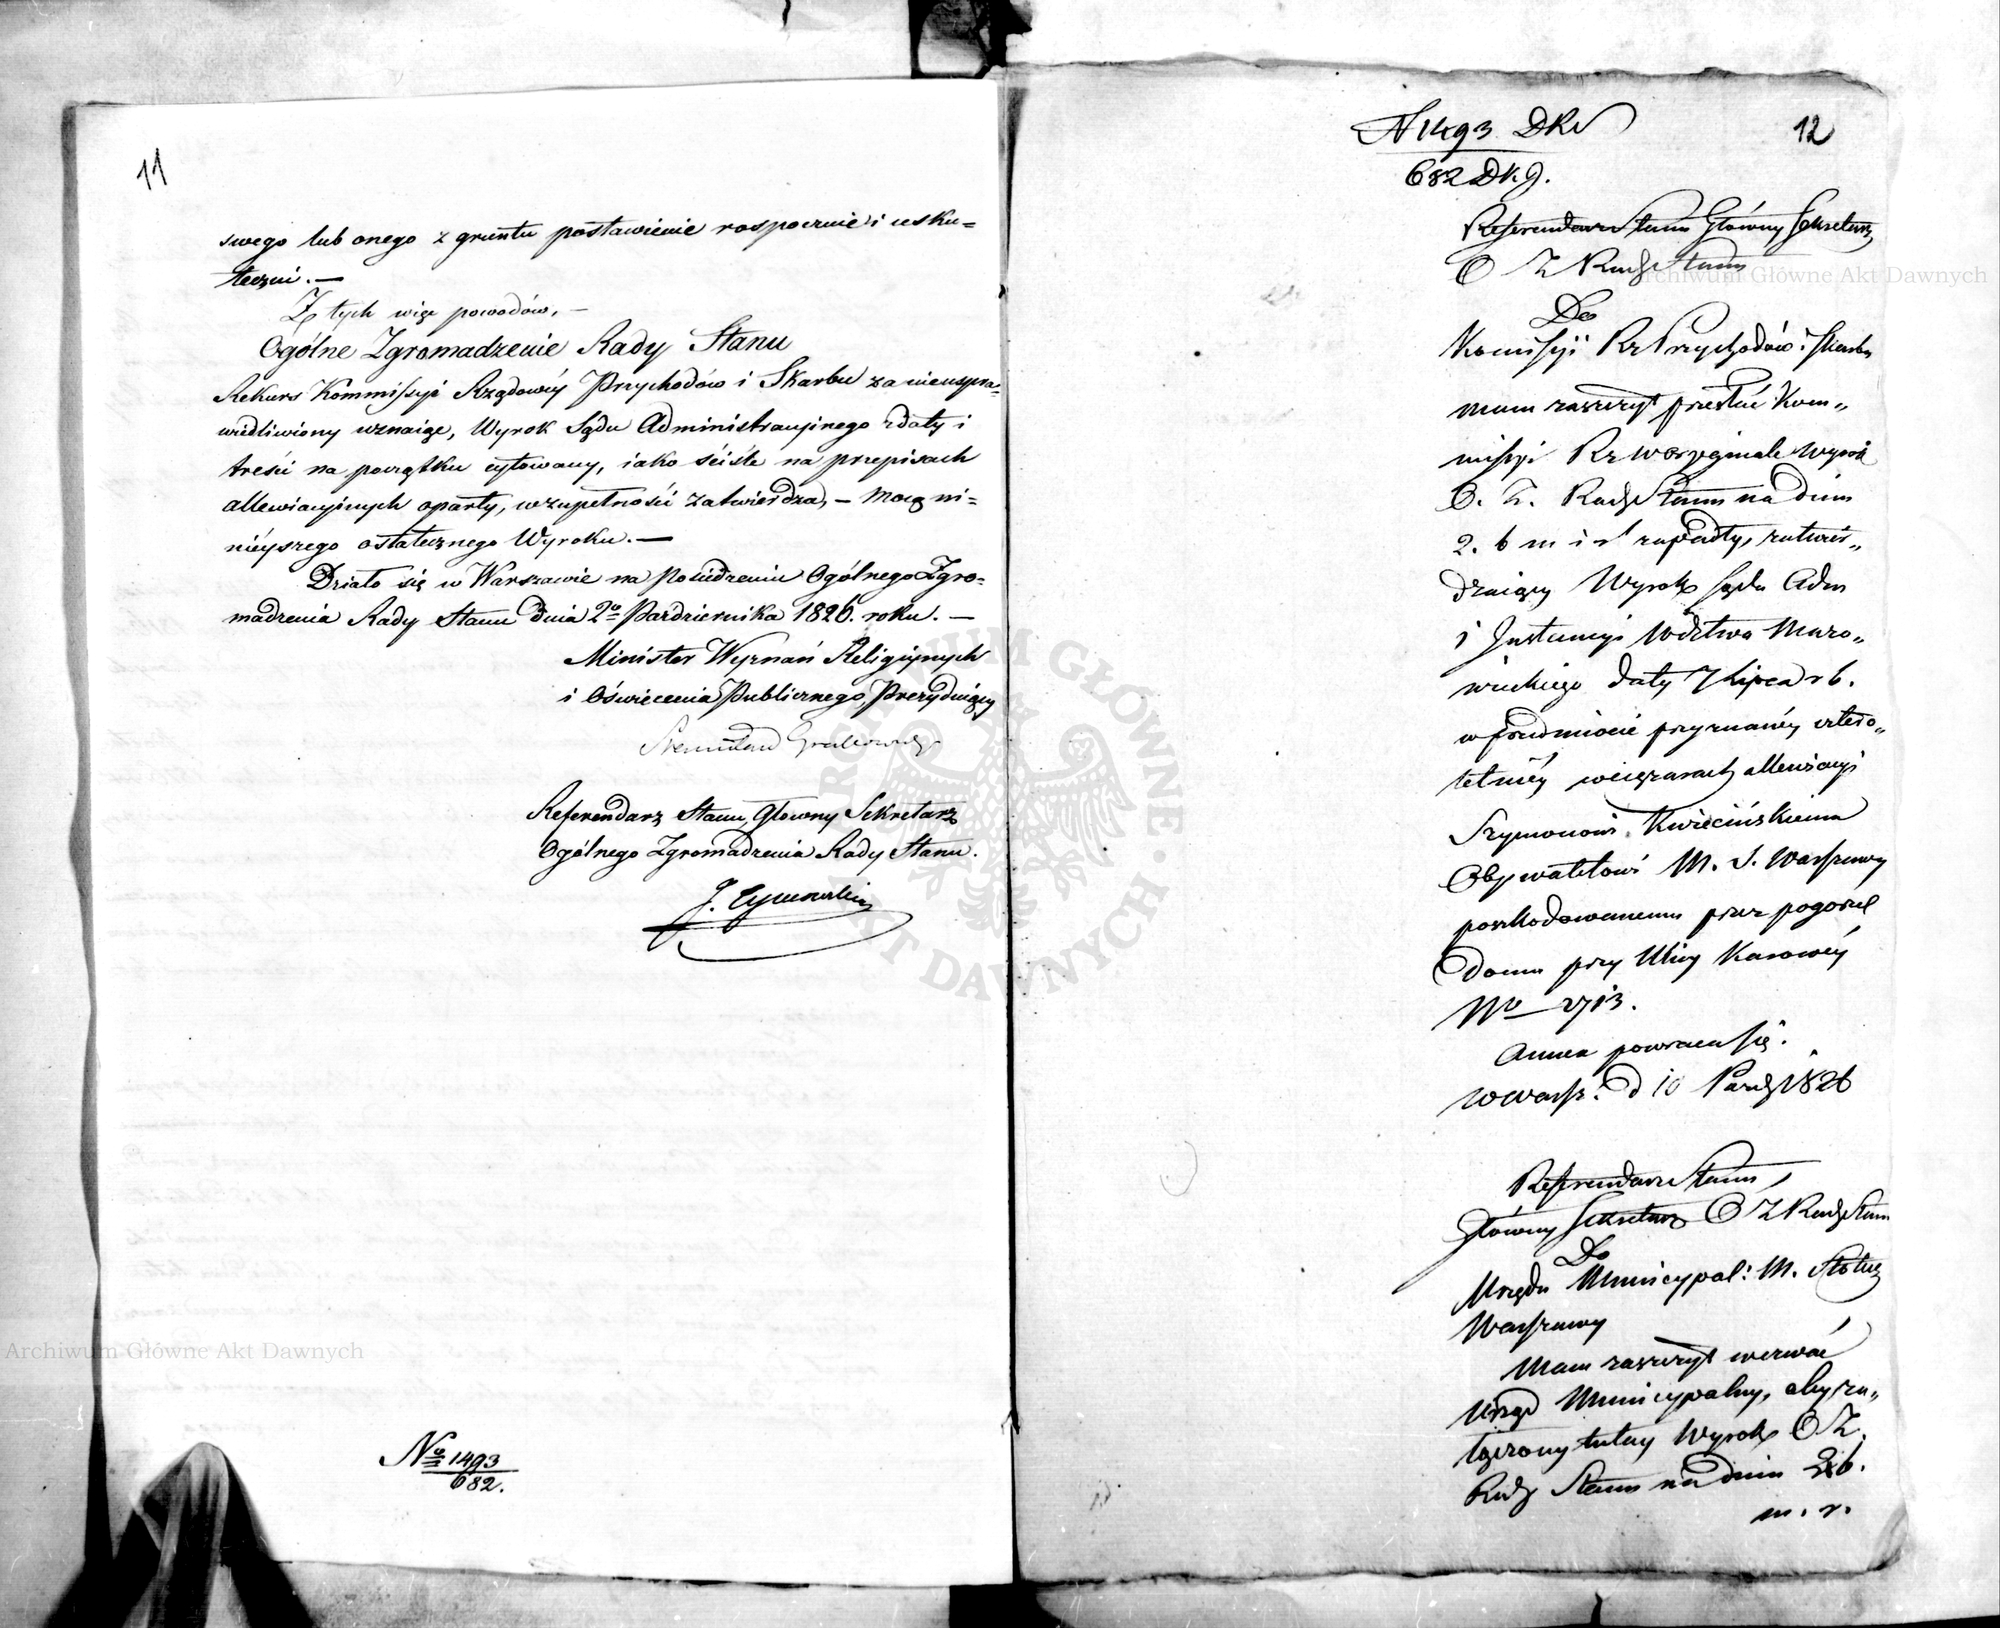 11
swego lub onego z gruntu postawienie rospocznie i usku=
teczni. —
Z tych więc powodów, —
Ogólne Zgromadzenie Rady Stanu
Rekurs Kommissyi Rządowéy Przychodów i Skarbu za nieuspra-
wiedliwiony uznaiąc, Wyrok Sądu Administracyinego z daty i
treści na początku cytowany, iako ściśle na przepisach
allewiacyinych oparty, w zupełności zatwierdza, — mocą ni=
nieyszego ostatecznego Wyroku. —
Działo się w Warszawie na Posiedzeniu Ogólnego Zgro=
madzenia Rady Stanu dnia 2go Pazdziernika 1826. roku. —
Minister Wyznań Religiynych
i Oświecenia Publicznego, Prezyduiący
Stanisław Grabowski
Referendarz Stanu, Głowny Sekretarz
Ogólnego Zgromadzenia Rady Stanu.
J.
No 1493
682.
12
N 1493 DRS
682 DKG.
Referendarz Stanu Główny Sekretarz
O Z Rady Stanu
Do
Komissyi Rz Przychodów i Skarbu
mam zaszczyt przesłać Kom„
missyi Rz w oryginale wyrok
O. Z. Rady Stanu na dniu
2. b m i r zapadły, zatwier„
dzaiący Wyrok Sądu Adm
i Instancyi Wdztwa Mazo„
wieckiego daty 7 Lipca r b.
w przedmiocie przyznanéy cztero„
letniéy w ciężarach allewiacyi
Szymonowi Kwiecińskiemu
Obywatelowi M. S. Warszawy
poszkodowanemu przez pogorzel
Domu przy Ulicy Karowéy
No 2713.
Annexa powracaią się.
w Warsz. d 10 Paźdz 1826
Referendarz Stanu,
Główny Sekretarz O Z Rady Stanu
Do
Urzędu Municypal: M. Stołecz
Warszawy
Mam zaszczyt wezwać
Urząd Municypalny, aby za„
łączony tutay Wyrok O Z.
Rady Stanu na dniu 2 b.
m. r.
Archiwum Główne Akt Dawnych
Archiwum Główne Akt Dawnych
ARCHIWUM GŁÓWNE · AKT DAWNYCH ·